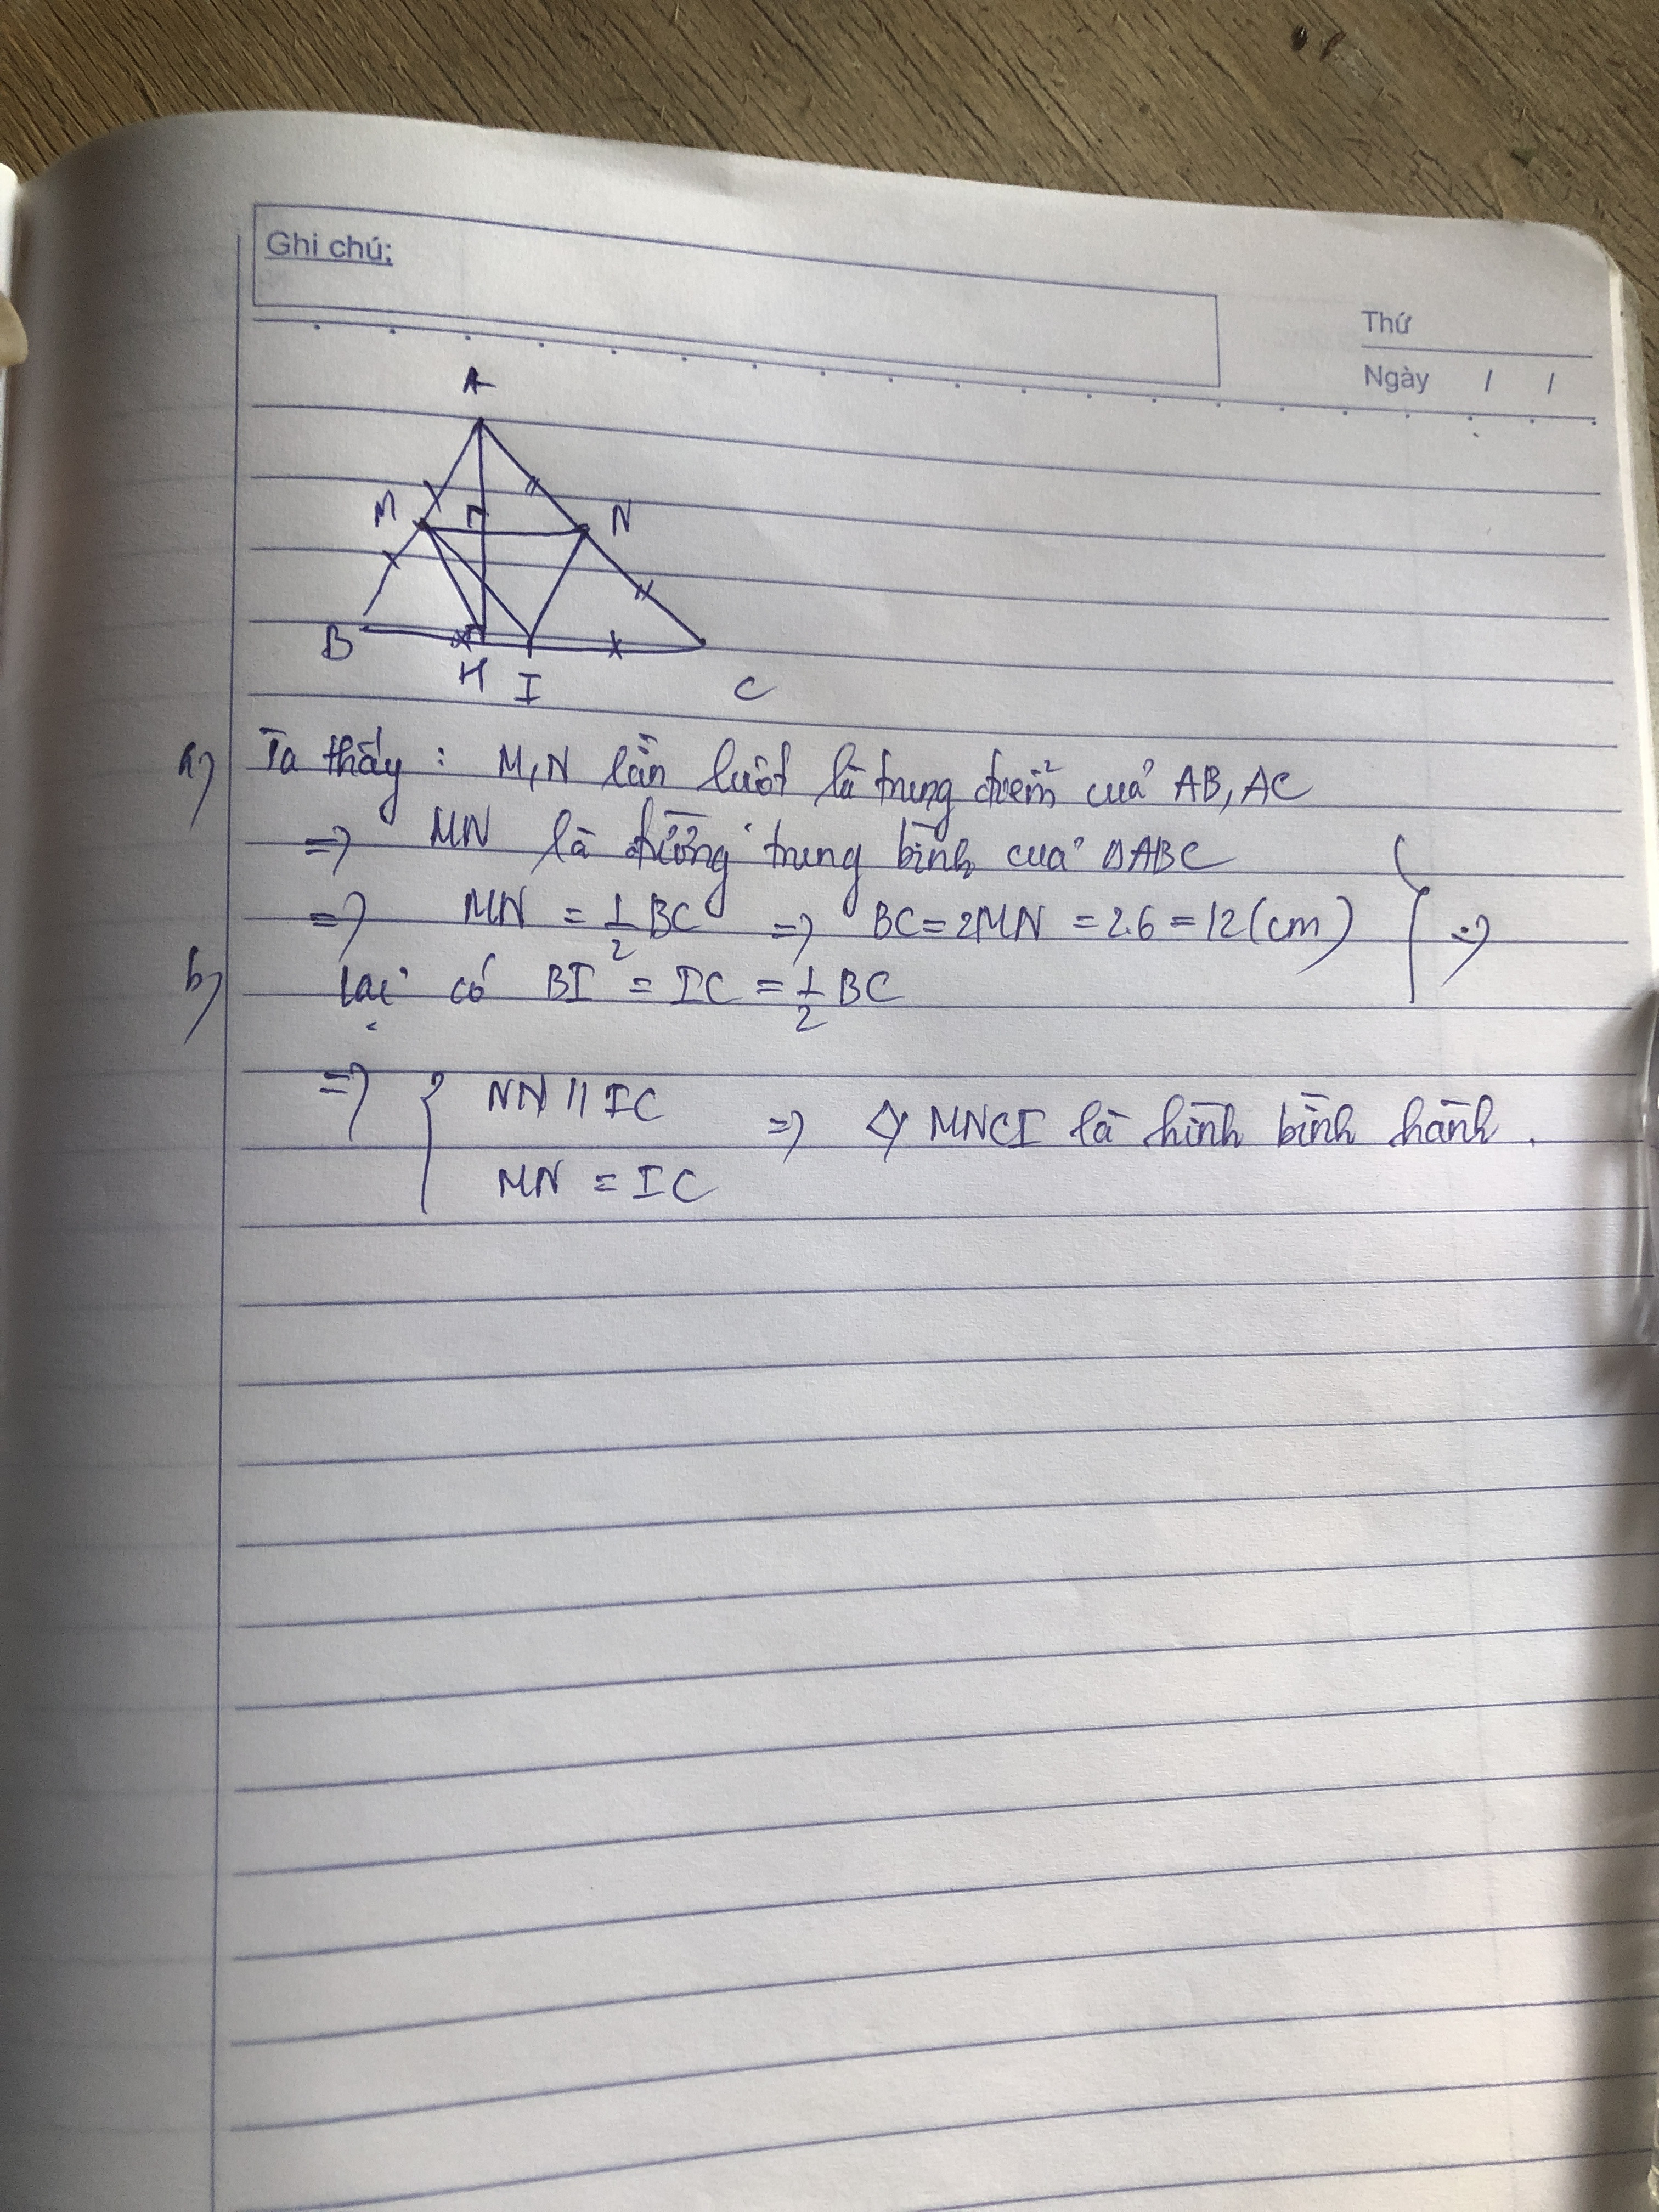 Ghi chú:
Thứ
Ngày / /
A
M
N
B
H
I
C
a) Ta thấy : M,N lần lượt là trung điểm của AB, AC
=> MN là đường trung bình của ΔABC
=> MN = 1/2 BC => BC = 2MN = 2.6 = 12 (cm) } =>
b) lại có BI = IC = 1/2 BC
=> { NN // IC
MN = IC
=> MNCI là hình bình hành.